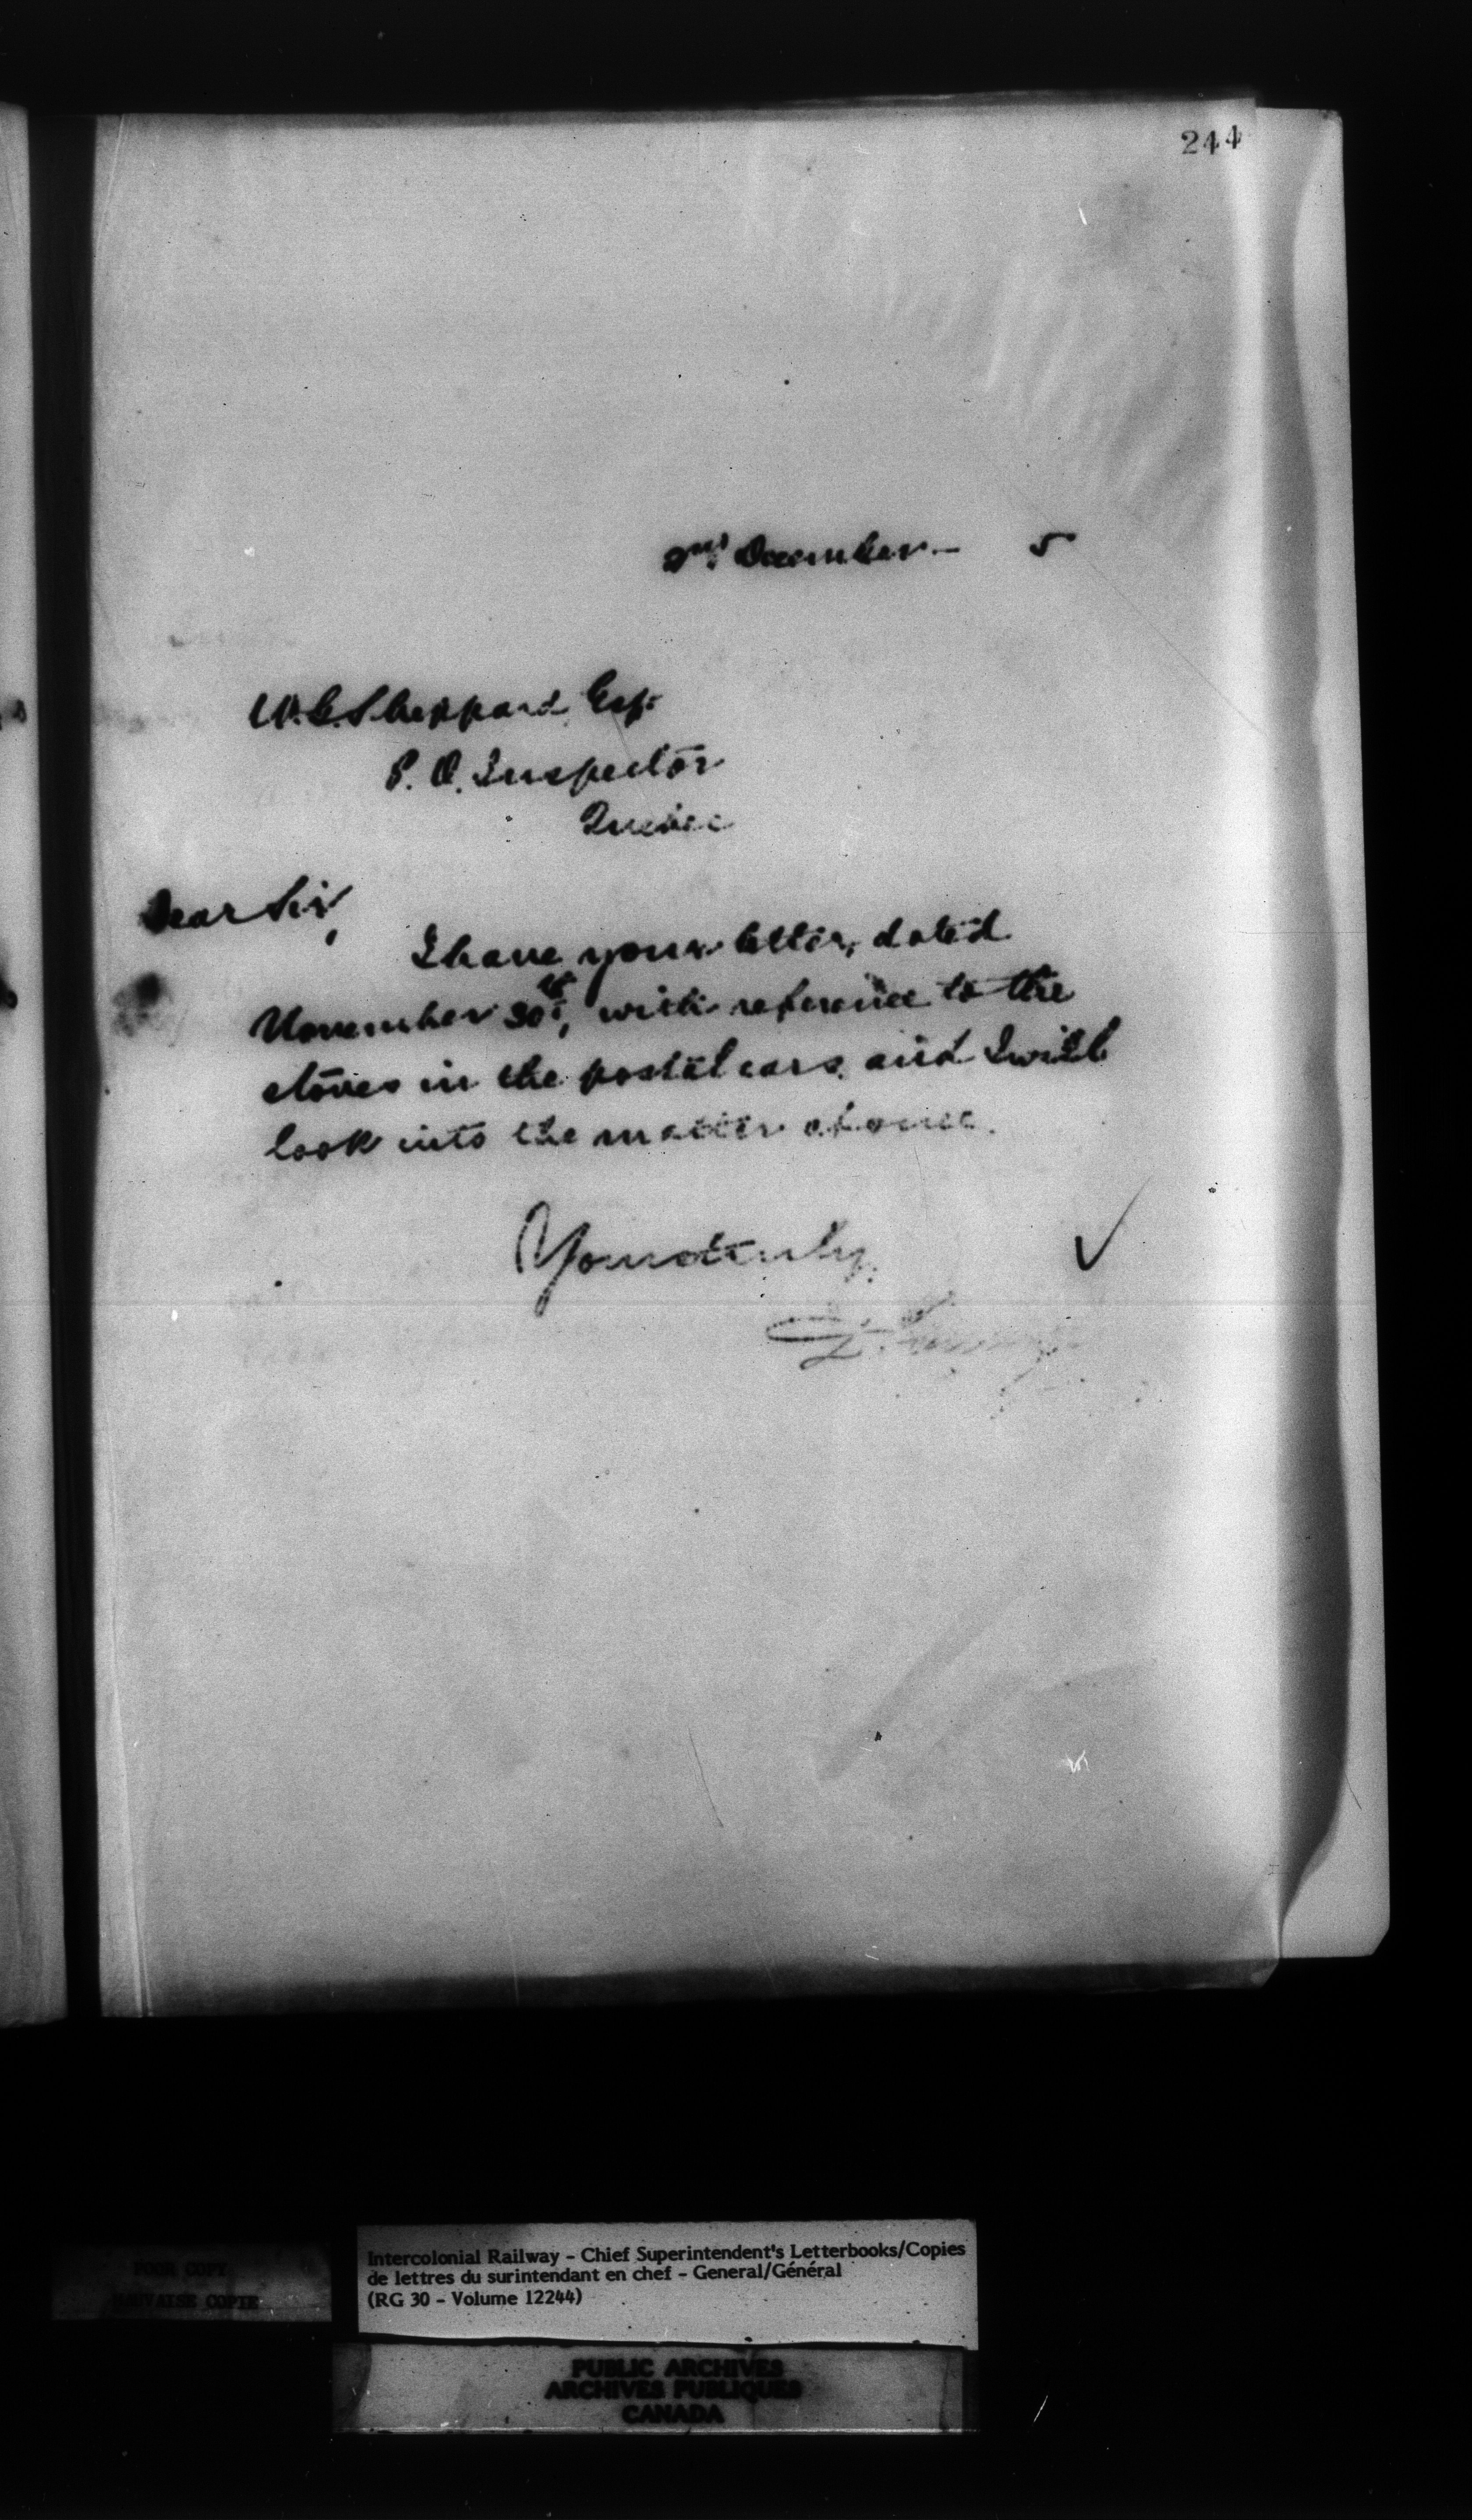 244
2nd December — 5
W. G. Sheppard Esq.
P. O. Inspector
Quebec
Dear Sir,
I have your letter, dated
November 30th, with reference to the
stoves in the postal cars, and I will
look into the matter at once.
Yours truly,
POOR COPY
MAUVAISE COPIE
Intercolonial Railway - Chief Superintendent's Letterbooks/Copies
de lettres du surintendant en chef - General/Général
(RG 30 - Volume 12244)
PUBLIC ARCHIVES
ARCHIVES PUBLIQUES
CANADA